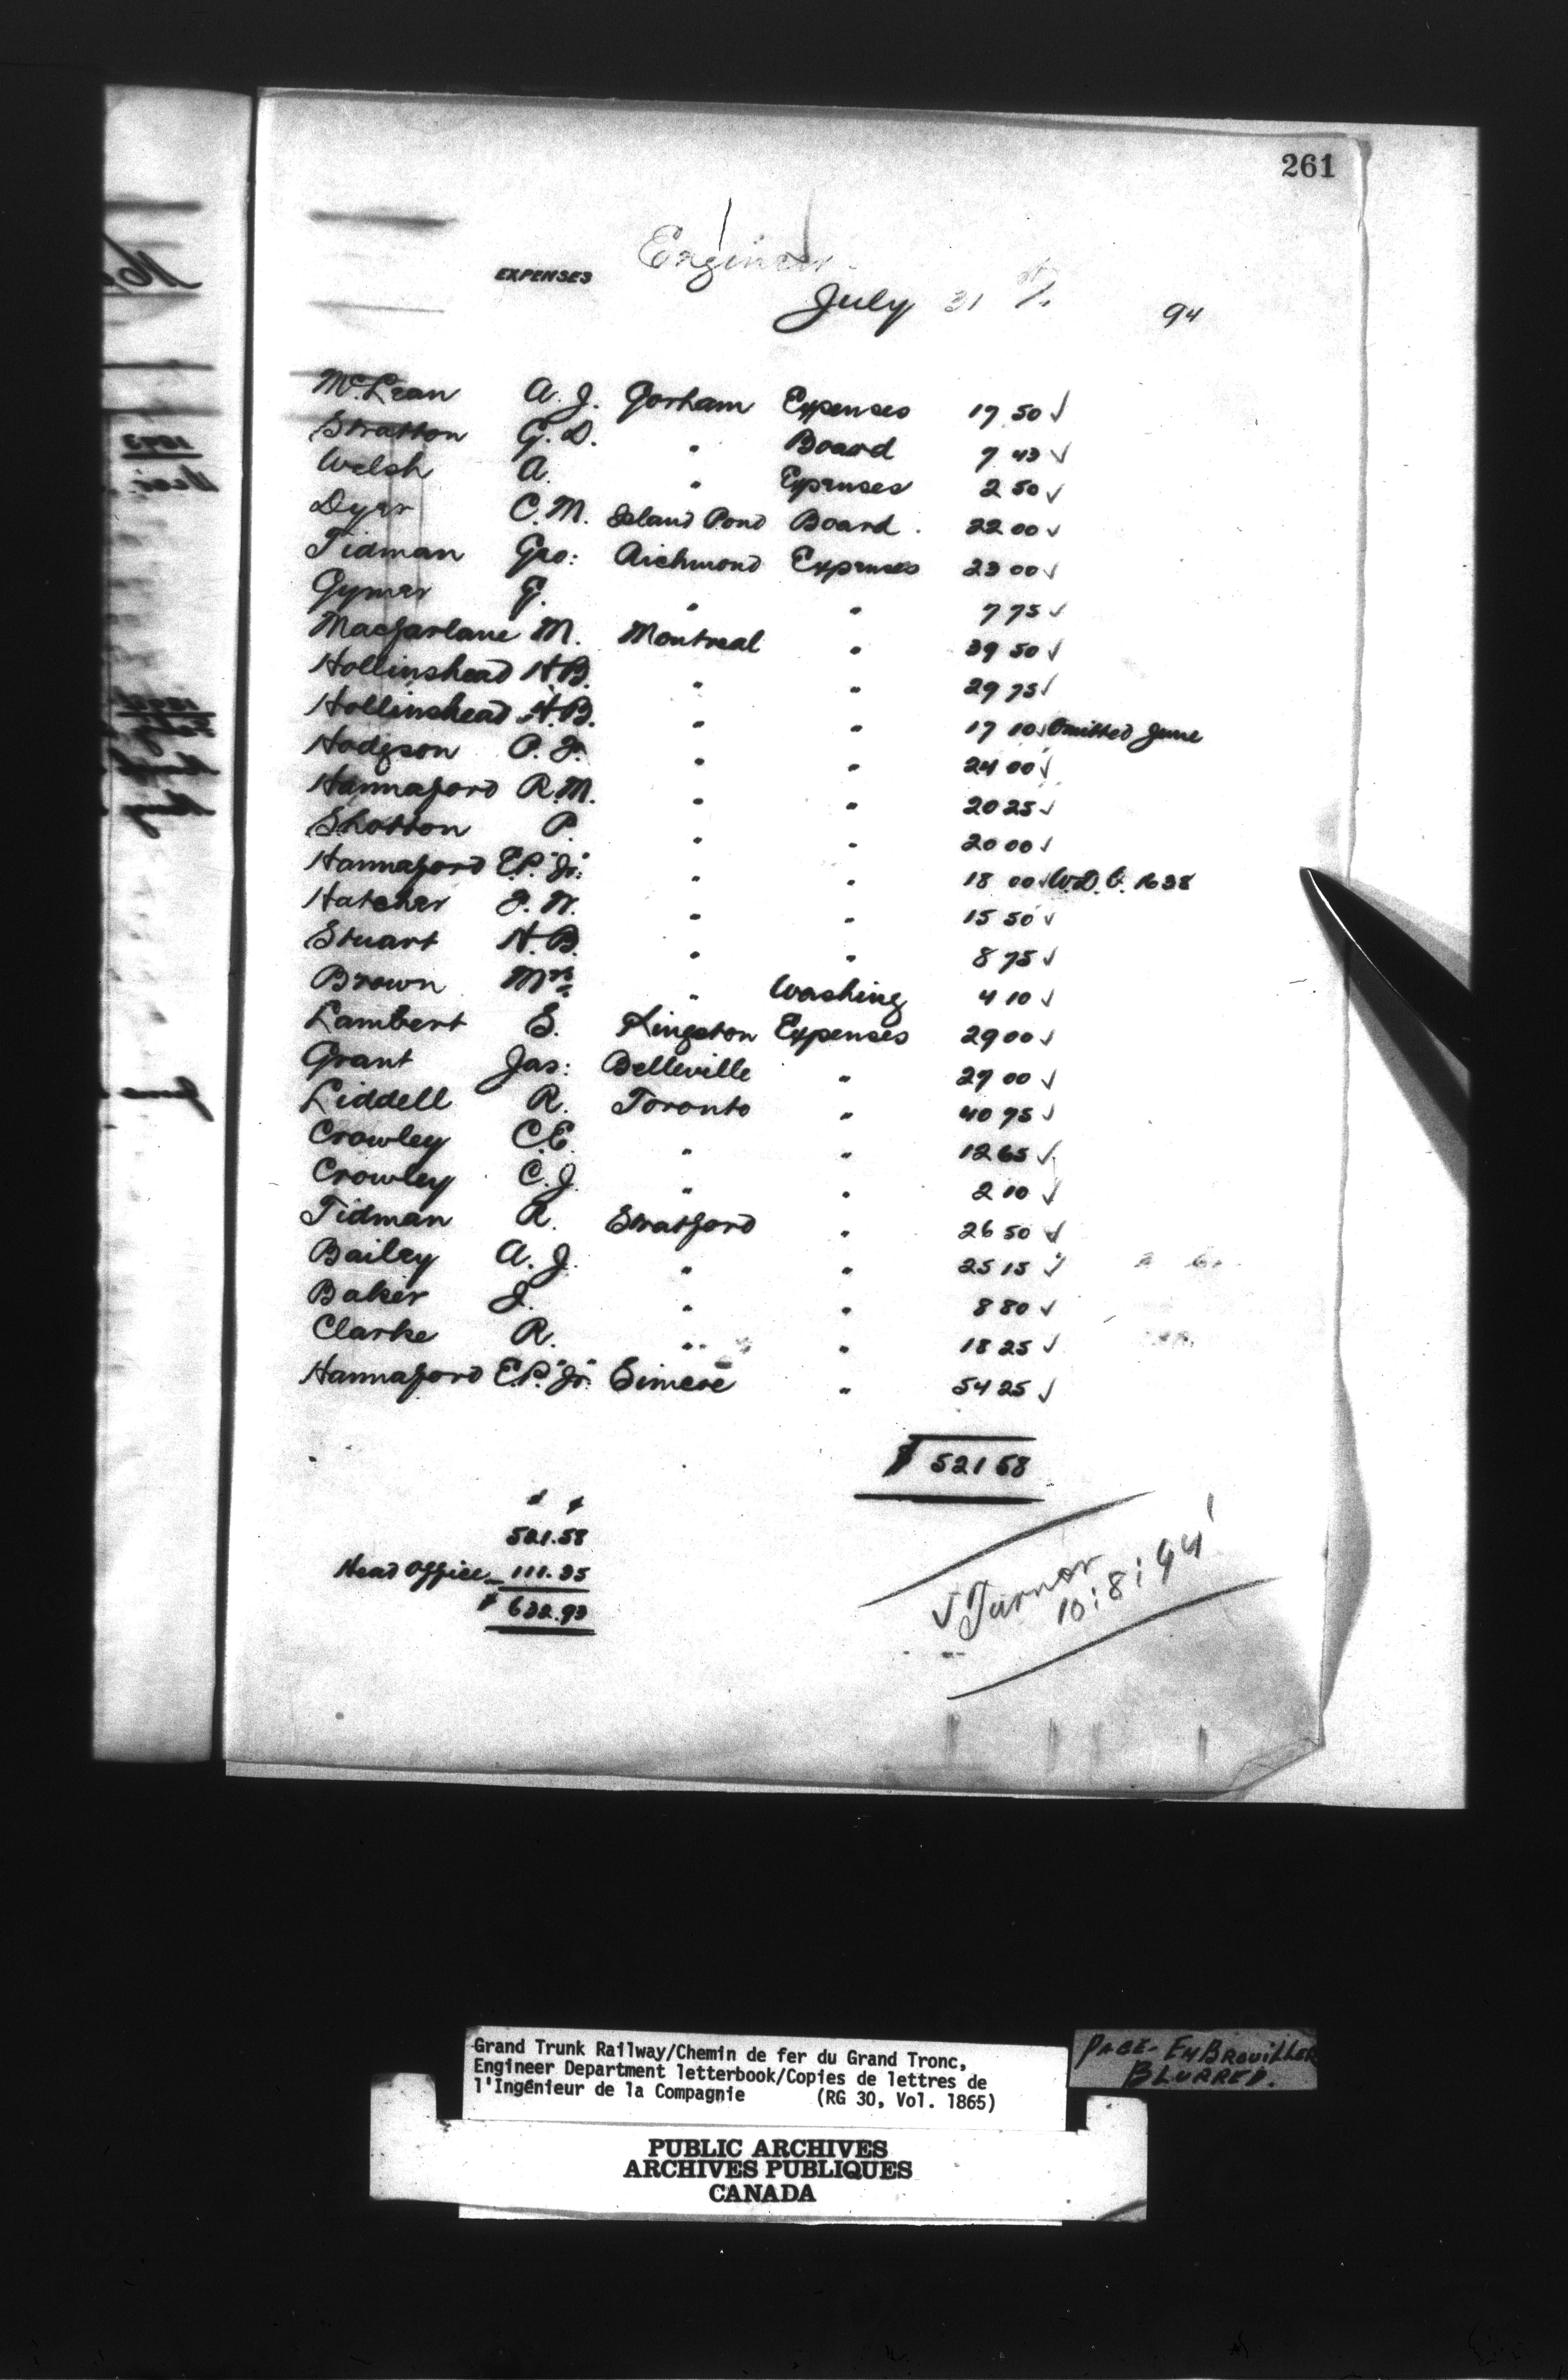 261
Engineer
EXPENSES
July 31st 94
McLean A. J. Gorham Expenses 17 50 ✓
Stratton G. D. " Board 7 43 ✓
Welsh A. " Expenses 2 50 ✓
Dyer C. M. Island Pond Board. 22 00 ✓
Tidman Geo: Richmond Expenses 23 00 ✓
Gymer G. " " 7 75 ✓
Macfarlane M. Montreal " 39 50 ✓
Hollinshead H.B. " " 29 75 ✓
Hollinshead H.B. " " 17 10 ✓ Omitted June
Hodgson P. F. " " 24 00 ✓
Hannaford R.M. " " 20 25 ✓
Shotton P. " " 20 00 ✓
Hannaford E.P. "Jr." " " 18 00 ✓ W.D.C. 1638
Hatcher F. W. " " 15 50 ✓
Stuart H. B. " " 8 75 ✓
Brown Mrs. " Washing 4 10 ✓
Lambert S. Kingston Expenses 29 00 ✓
Grant Jas: Belleville " 27 00 ✓
Liddell R. Toronto " 40 75 ✓
Crowley C.E. " " 12 65 ✓
Crowley C. J. " " 2 10 ✓
Tidman R. Stratford " 26 50 ✓
Bailey A. J. " " 25 15 ✓
Baker J. " " 8 80 ✓
Clarke R. " " 18 25 ✓
Hannaford E.P. "Jr." Simcoe " 54 25 ✓
$ 521 58
$ ¢
521.58
Head Office 111.35
$ 632.93
✓ Turnor
10:8:94
Grand Trunk Railway/Chemin de fer du Grand Tronc,
Engineer Department letterbook/Copies de lettres de
l'Ingénieur de la Compagnie (RG 30, Vol. 1865)
PAGE- EMBROUILLER
BLURRED.
PUBLIC ARCHIVES
ARCHIVES PUBLIQUES
CANADA